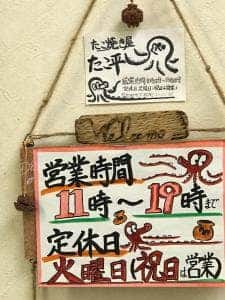 たこ焼き屋
たこ平
Welcome
営業時間
11時～19時まで
定休日
火曜日(祝日は営業)